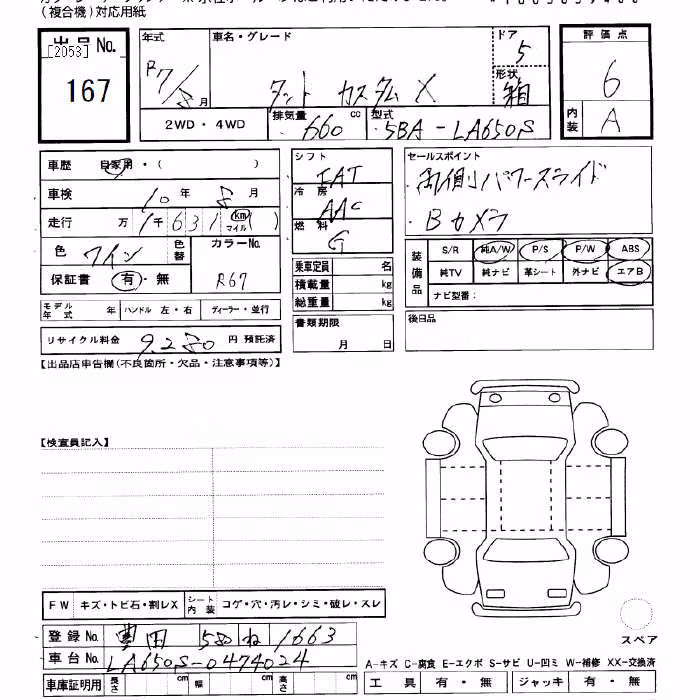 (複合機)対応用紙
出品No.
[2053]
167
年式 R7/8月
車名・グレード
タント カスタム X
ドア 5
形状 箱
評価点 6
内装 A
2WD・4WD
排気量 660 cc
型式 5BA-LA650S
車歴 自家用・( )
車検 10年 8月
走行 万 1千631 km マイル ( )
色 ワイン
色替
カラーNo. R67
保証書 有・無
シフト IAT
冷房 AAC
燃料 G
乗車定員 名
積載量 kg
総重量 kg
書類期限 月 日
セールスポイント
・両側パワースライド
・Bカメラ
装備品
S/R 純A/W P/S P/W ABS
純TV 純ナビ 革シート 外ナビ エアB
ナビ型番:
後日品
モデル年式 年 ハンドル 左・右 ディーラー・並行
リサイクル料金 9,280 円 預託済
【出品店申告欄(不良箇所・欠品・注意事項等)】
【検査員記入】
FW キズ・トビ石・割レX シート内装 コゲ・穴・汚レ・シミ・破レ・スレ
登録No. 豊田 580 ね 1663
車台No. LA650S-0474024
車庫証明用 長さ cm 幅 cm 高さ cm
スペア
A-キズ C-腐食 E-エクボ S-サビ U-凹ミ W-補修 XX-交換済
工具 有・無 ジャッキ 有・無